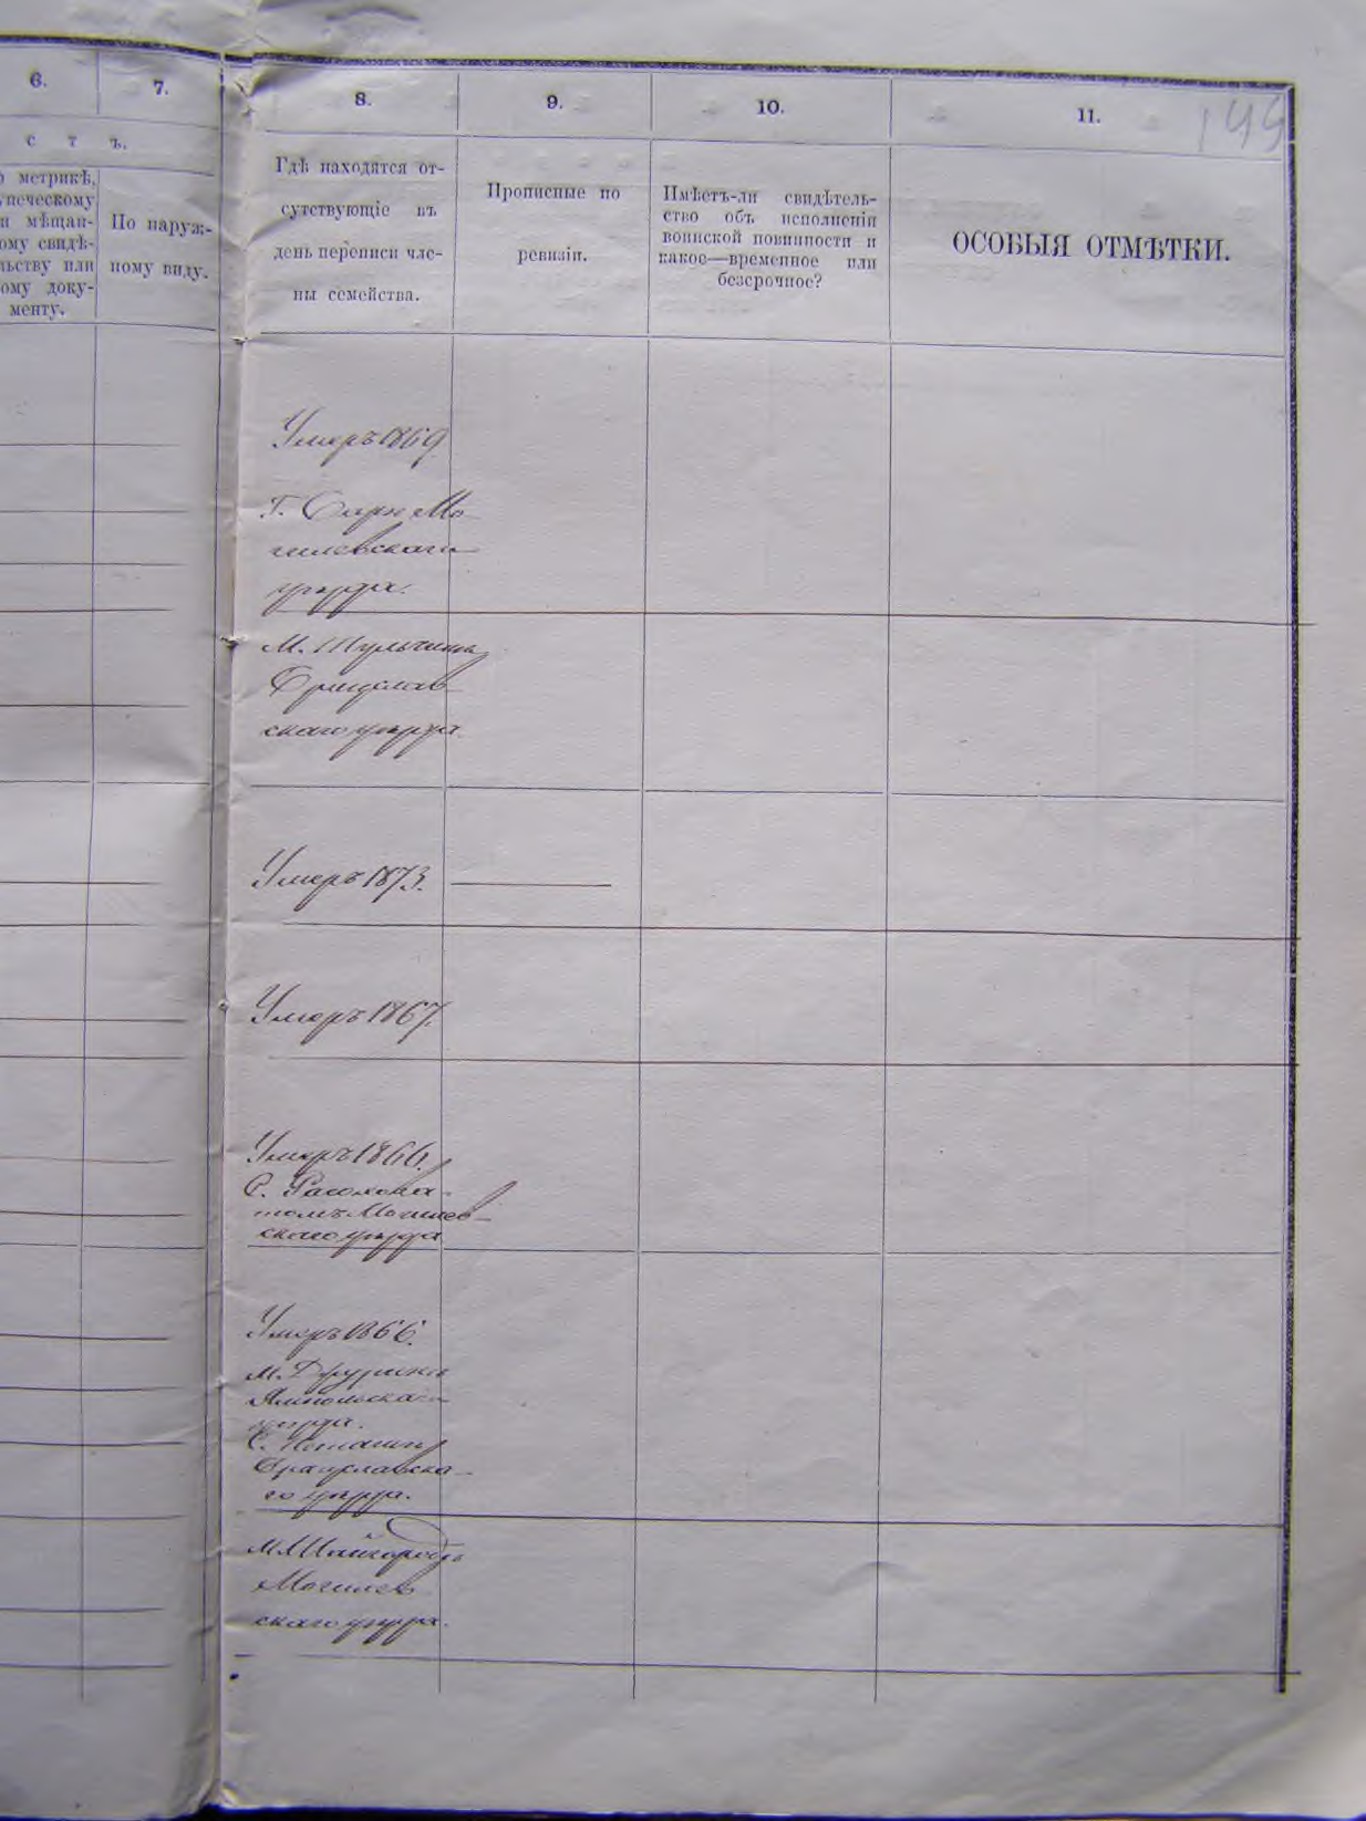 6.
7.
8.
9.
10.
11.
с т ъ.
метрикѣ,
По наруж-
ному виду.
документу.
Гдѣ находятся от-
сутствующіе въ
день переписи чле-
ны семейства.
Прописные по
ревизіи.
Имѣетъ-ли свидѣтель-
ство объ исполненіи
воинской повинности и
какое—временное или
безсрочное?
ОСОБЫЯ ОТМѢТКИ.
Умеръ 1869
Мо
гилевскаго
уѣзда.
М. Тульчинъ
Брацлав
скаго уѣзда.
Умеръ 1873.
Умеръ 1867.
Умеръ 1866.
С.
Могилев-
скаго уѣзда
Умеръ 1866.
М.
Ямпольскаго
уѣзда.
С.
Брацлавска-
го уѣзда.
М. Шаргородъ
Могилев
скаго уѣзда.